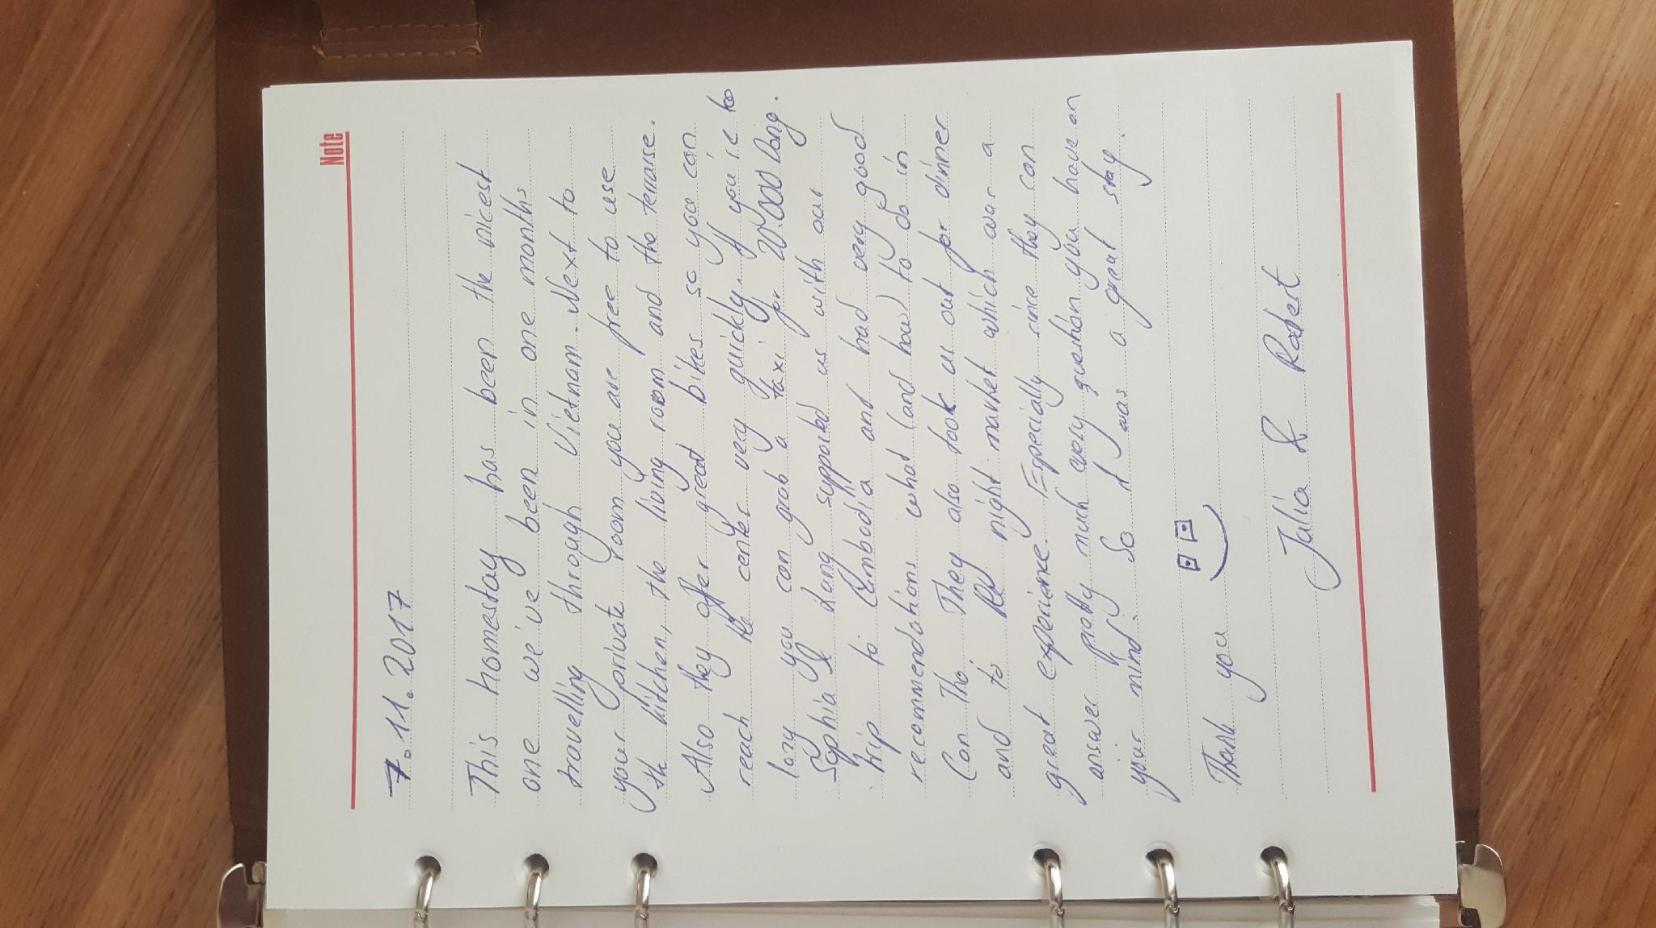 Note
7.11.2017
This homestay has been the nicest
one we've been in one months
travelling through Vietnam. Next to
your private room you are free to use
the kitchen, the living room and the terrasse.
Also they offer great bikes so you can
reach the center very quickly. If you're too
lazy you can grab a taxi for 20.000 Dong.
Sophia & Long supported us with our
trip to Cambodia and had very good
recommendations what (and how) to do in
Can Tho. They also took us out for dinner
and to the night market which was a
great experience. Especially since they can
answer pretty much every question you have on
your mind. So it was a great stay.
Thank you
Julia & Robert